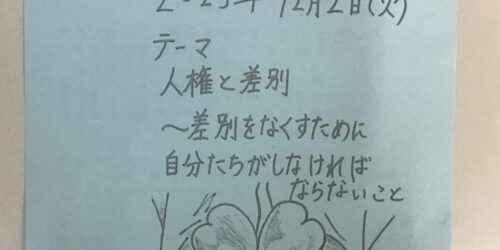 2025年 12月2日(火)
テーマ
人権と差別
～差別をなくすために
自分たちがしなければ
ならないこと